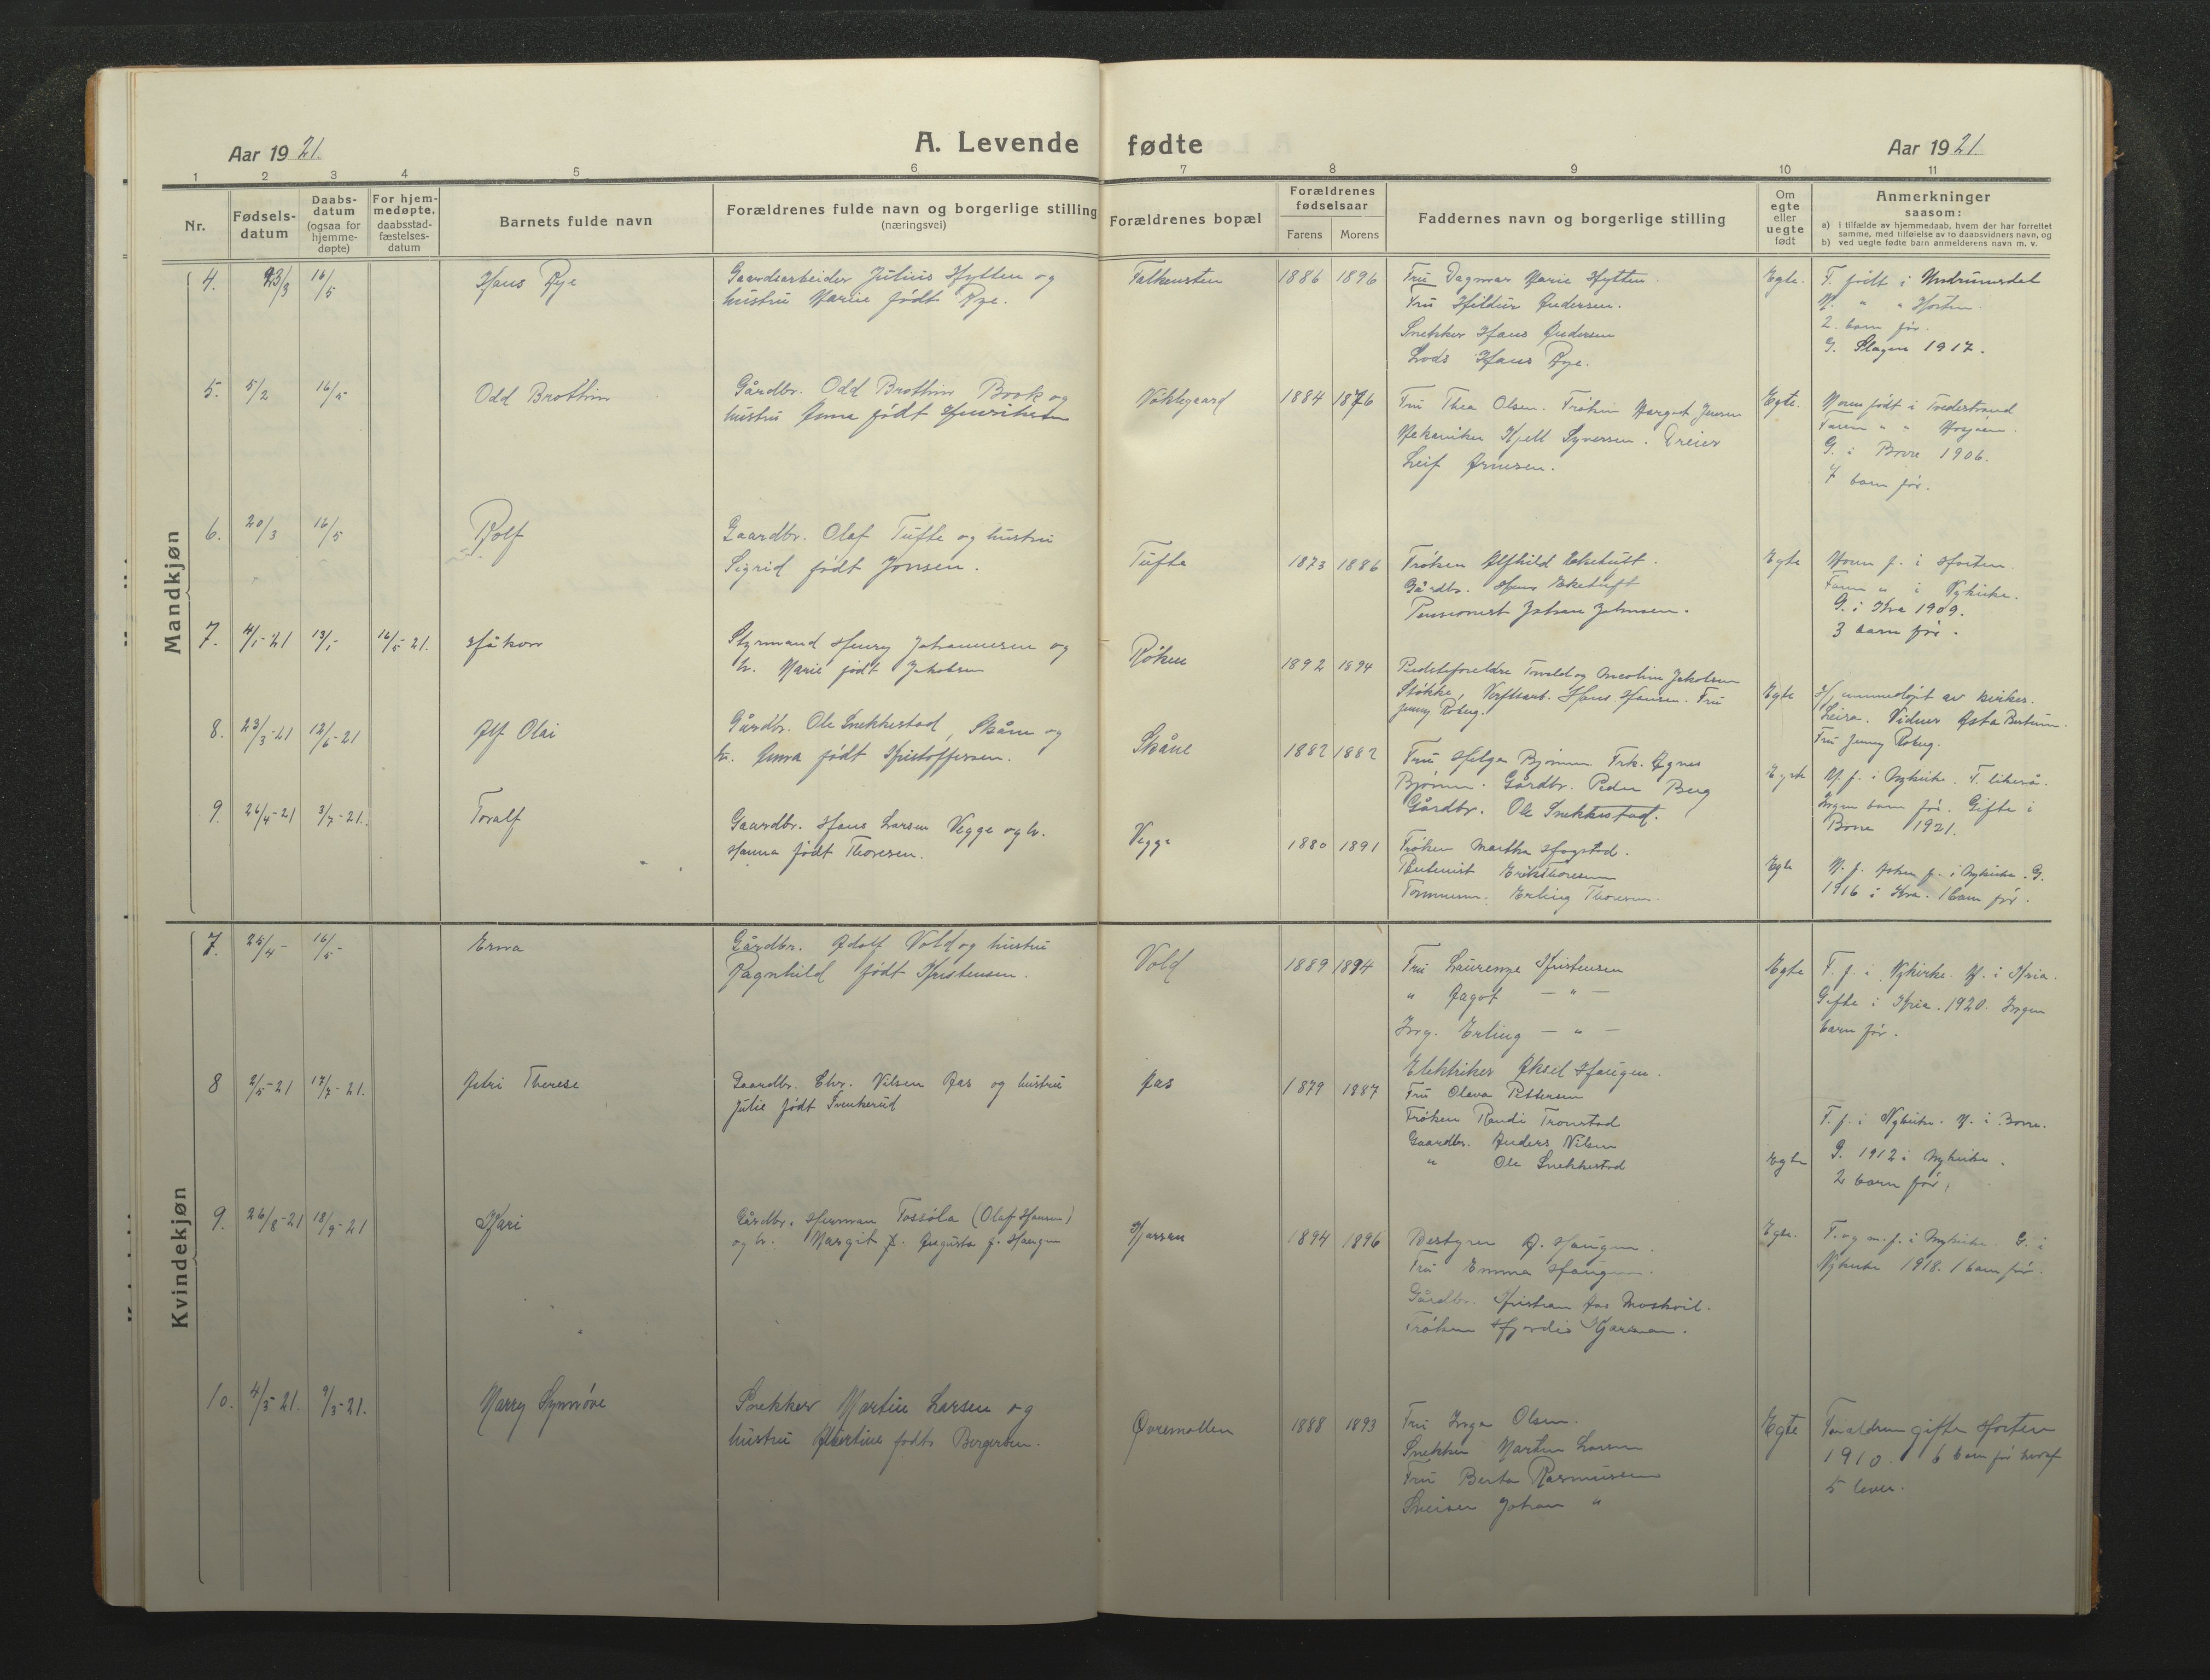 Aar 1921.
A. Levende fødte
Aar 1921.
1 2 3 4 5 6 7 8 9 10 11
Nr.
Fødsels-
datum
Daabs-
datum
(ogsaa for
hjemme-
døpte)
For hjem-
medøpte,
daabsstad-
fæstelses-
datum
Barnets fulde navn
Forældrenes fulde navn og borgerlige stilling
(næringsvei)
Forældrenes bopæl
Forældrenes
fødselsaar
Farens Morens
Faddernes navn og borgerlige stilling
Om
egte
eller
uegte
født
Anmerkninger
saasom:
a) i tilfælde av hjemmedaab, hvem der har forrettet
samme, med tilføielse av to daabsvidners navn, og
b) ved uegte fødte barn anmelderens navn m. v.
Mandkjøn
4. 23/3 16/5 Hans Rye
Gaardsarbeider Julius Hytten og
hustru Marie født Rye.
Falkensten 1886 1896
Fru Dagmar Marie Hytten.
Fru Hildur Andersen.
Snekker Hans Andersen
Lods Hans Rye.
Egte.
F. født i Undrumsdal
M. " " Horten.
2. barn før.
G. Slagen 1917.
5. 5/2 16/5 Odd Brothin
Gårdbr. Odd Brothin Brook og
hustru Anna født Henriksen
1884 1876
Fru Thea Olsen. Frøken Margot Jensen
Mekaniker Kjell Syversen. Dreier
Leif Arnesen.
Egte.
Moren født i Tvedestrand
Faren " "
G. i Borre 1906.
7 barn før.
6. 20/3 16/5 Rolf
Gaardbr. Olaf Tufte og hustru
Sigrid født Jonsen.
Tufte 1873 1886
Frøken Alfhild Eketuft.
Gårdbr. Hans Eketuft
Pensionist Johan Johnsen.
Egte
Moren f. i Horten.
Faren " i Nykirke.
G. i Hra 1909.
3 barn før.
7. 4/1-21 13/1 16/5 21. Håkon
Styrmand Henry Johannesen og
h. Marie født Jakobsen
Røken 1892 1894
Bedsteforeldre Torvald og Nicoline Jakobsen
Stokke, Verftsarb. Hans Hansen. Fru
Jenny Roberg.
Egte
Hjemmedøpt av kirkes.
Leira. Vidner Asta
Fru Jenny Roberg.
8. 23/3-21 12/6-21 Alf Olai
Gårdbr. Ole Snekkestad, Skåne og
h. Anna født Kristoffersen.
Skåne 1882 1882
Fru Helga Bjørnum Frk. Agnes
Bjørnum. Gårdbr. Peder Berg
Gårdbr. Ole Snekkestad.
Egte
M. f. i Nykirke. F. likeså.
Ingen barn før. Gifte i
Borre 1921.
9. 26/4-21 3/7-21. Toralf
Gaardbr. Hans Larsen Vegge og h.
Hanna født Thoresen.
Vegge 1880 1891
Frøken Martha Hogstad.
Erik Thoresen
Tømmerm. Erling Thoresen.
Egte
M. f. f. i Nykirke. G.
1916 i Hra. 1 barn før.
Kvindekjøn
7. 25/4- 16/5- Erna
Gårdbr. Adolf Vold og hustru
Ragnhild født Kristensen.
Vold 1889 1894
Fru Laurense Kristensen
" Dagot — " —
Ung. Erling — " —
Elektriker Aksel Haugen.
Egte
F. f. i Nykirke. M. i Kria.
Gifte i Kria. 1920. Ingen
barn før.
8 2/5-21 17/7-21. Astri Therese
Gaardbr. Chr. Nilsen Aas og hustru
Julie født Svenkerud
Aas 1879 1887
Fru Olava Pettersen
Frøken Randi Tronstad
Gaardbr. Anders Nilsen
" Ole Snekkestad
Egte
F. f. i Nykirke. M. i Borre.
G. 1912 i Nykirke.
2 barn før.
9. 26/8-21 18/9-21 Kari
Gårdbr. Herman Tossøla (Olaf Hansen)
og h. Margit f. Augusta f. Haugen
1894 1896
Bestyrer A. Haugen.
Fru Emma Haugen.
Gårdbr. Kristian Aas Moskvil.
Frøken Hjordis Kjærran.
Egte.
F. og m. f. i Nykirke. G. i
Nykirke 1918. 1 barn før.
10. 4/3 21. 9/3-21. Marry Synnøve
Snekker Martin Larsen og
hustru Albertine født Bergersen.
Øvremollen 1888 1893
Fru Inga Olsen.
Snekker Martin Larsen
Fru Berta Rasmussen
Johan "
Egte
Foraldrene gifte Horten
1910. 6 barn før hvoraf
5 lever.